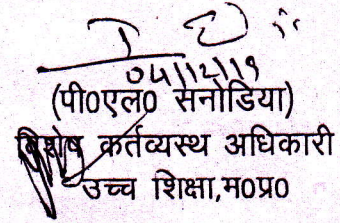 04/12/19
(पी0एल0 सनोडिया)
विशेष कर्तव्यस्थ अधिकारी
उच्च शिक्षा,म0प्र0